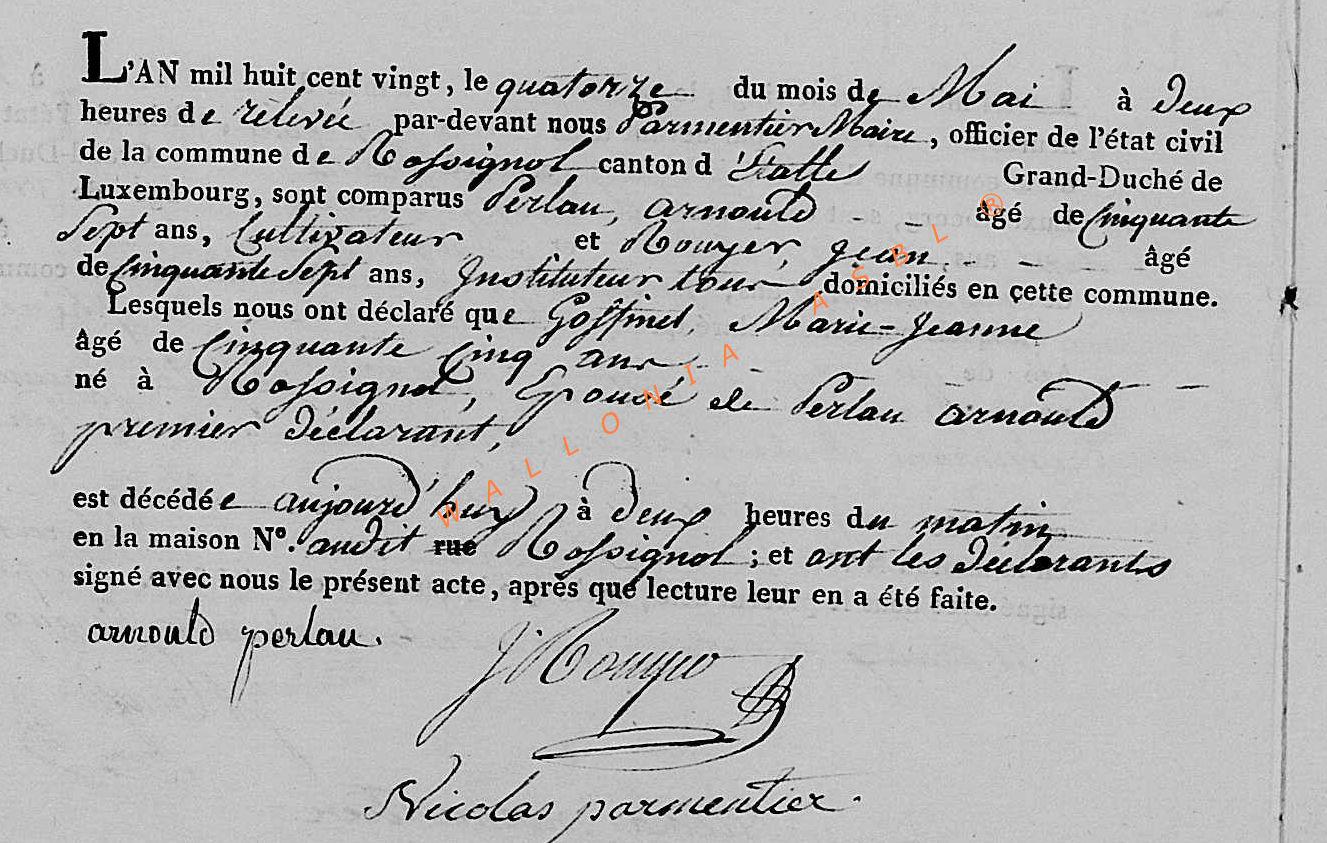 L'AN mil huit cent vingt, le quatorze du mois de Mai à deux
heures de relevée par-devant nous Parmentier Maire, officier de l'état civil
de la commune de Rossignol canton d'Etalle Grand-Duché de
Luxembourg, sont comparus Perlau, arnould - - âgé de Cinquante
Sept ans, Cultivateur et Rouyer, Jean - - - âgé
de Cinquante Sept ans, Instituteur tous domiciliés en cette commune.
Lesquels nous ont déclaré que Goffinet, Marie-Jeanne
âgé de Cinquante Cinq ans - -
né à Rossignol, Epouse de Perlau arnould -
premier déclarant,
est décédée aujourd'huy à deux heures du matin
en la maison N°. audit rue Rossignol ; et ont les déclarants
signé avec nous le présent acte, après que lecture leur en a été faite.
arnould perlau. J Rouyer
Nicolas parmentier.
WALLONIA ASBL ®